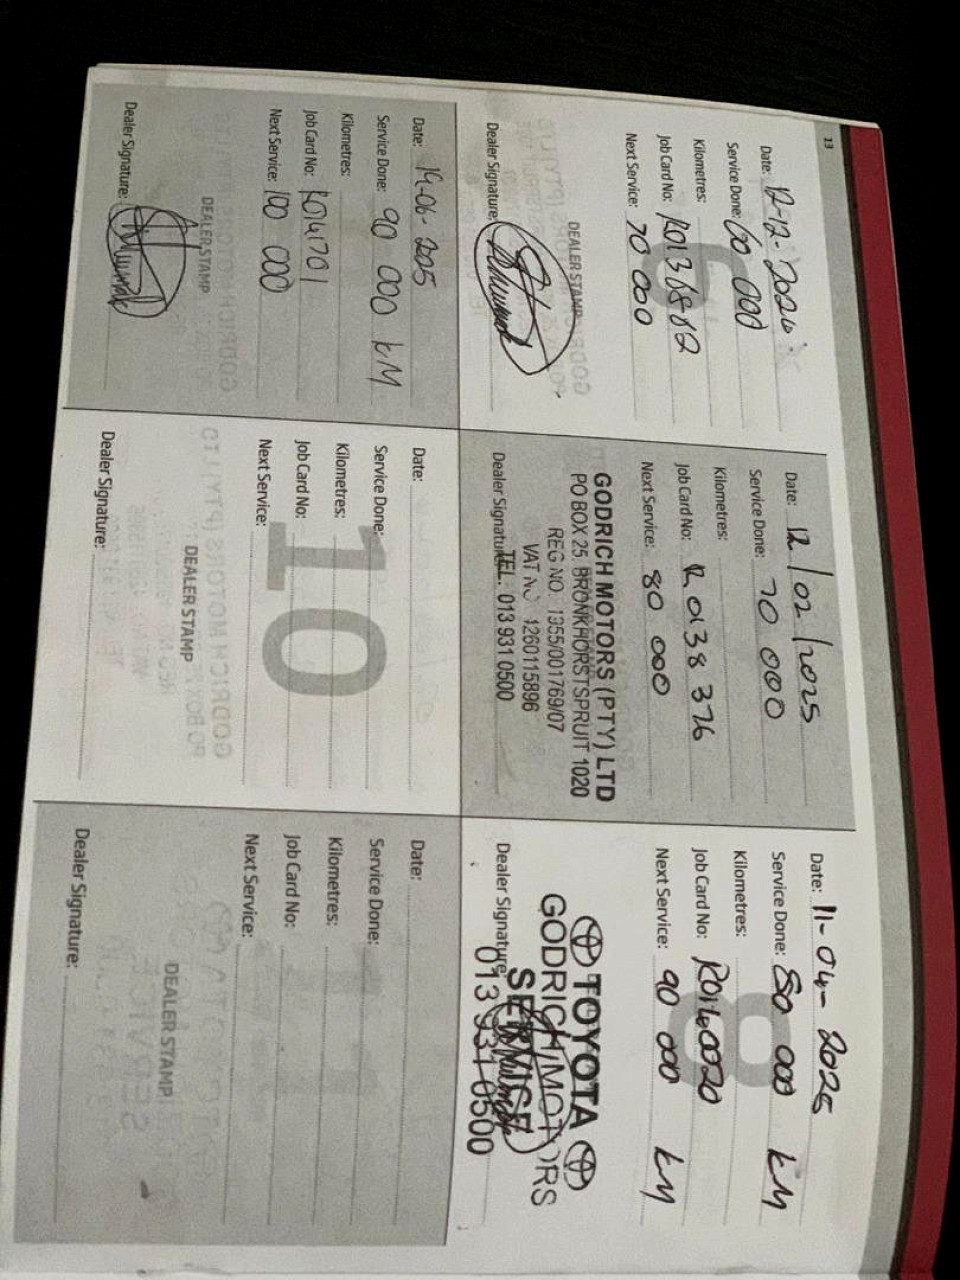 13
Date: 12-12-2024
Service Done: 60 000
Kilometres:
Job Card No: R0136882
Next Service: 70 000
DEALER STAMP
Dealer Signature:
Date: 12/02/2025
Service Done: 70 000
Kilometres:
Job Card No: R0138376
Next Service: 80 000
GODRICH MOTORS (PTY) LTD
PO BOX 25, BRONKHORSTSPRUIT 1020
REG NO. 1955/001769/07
VAT NO 1260115896
TEL: 013 931 0500
Dealer Signature
8
Date: 11-04-2025
Service Done: 80 000 KM
Kilometres:
Job Card No: R0140020
Next Service: 90 000 KM
TOYOTA
GODRICH MOTORS
SERVICE
013 931 0500
Dealer Signature
Date: 19-06-205
Service Done: 90 000 KM
Kilometres:
Job Card No: R0141701
Next Service: 100 000
DEALER STAMP
Dealer Signature:
10
Date:
Service Done:
Kilometres:
Job Card No:
Next Service:
DEALER STAMP
Dealer Signature:
11
Date:
Service Done:
Kilometres:
Job Card No:
Next Service:
DEALER STAMP
Dealer Signature: